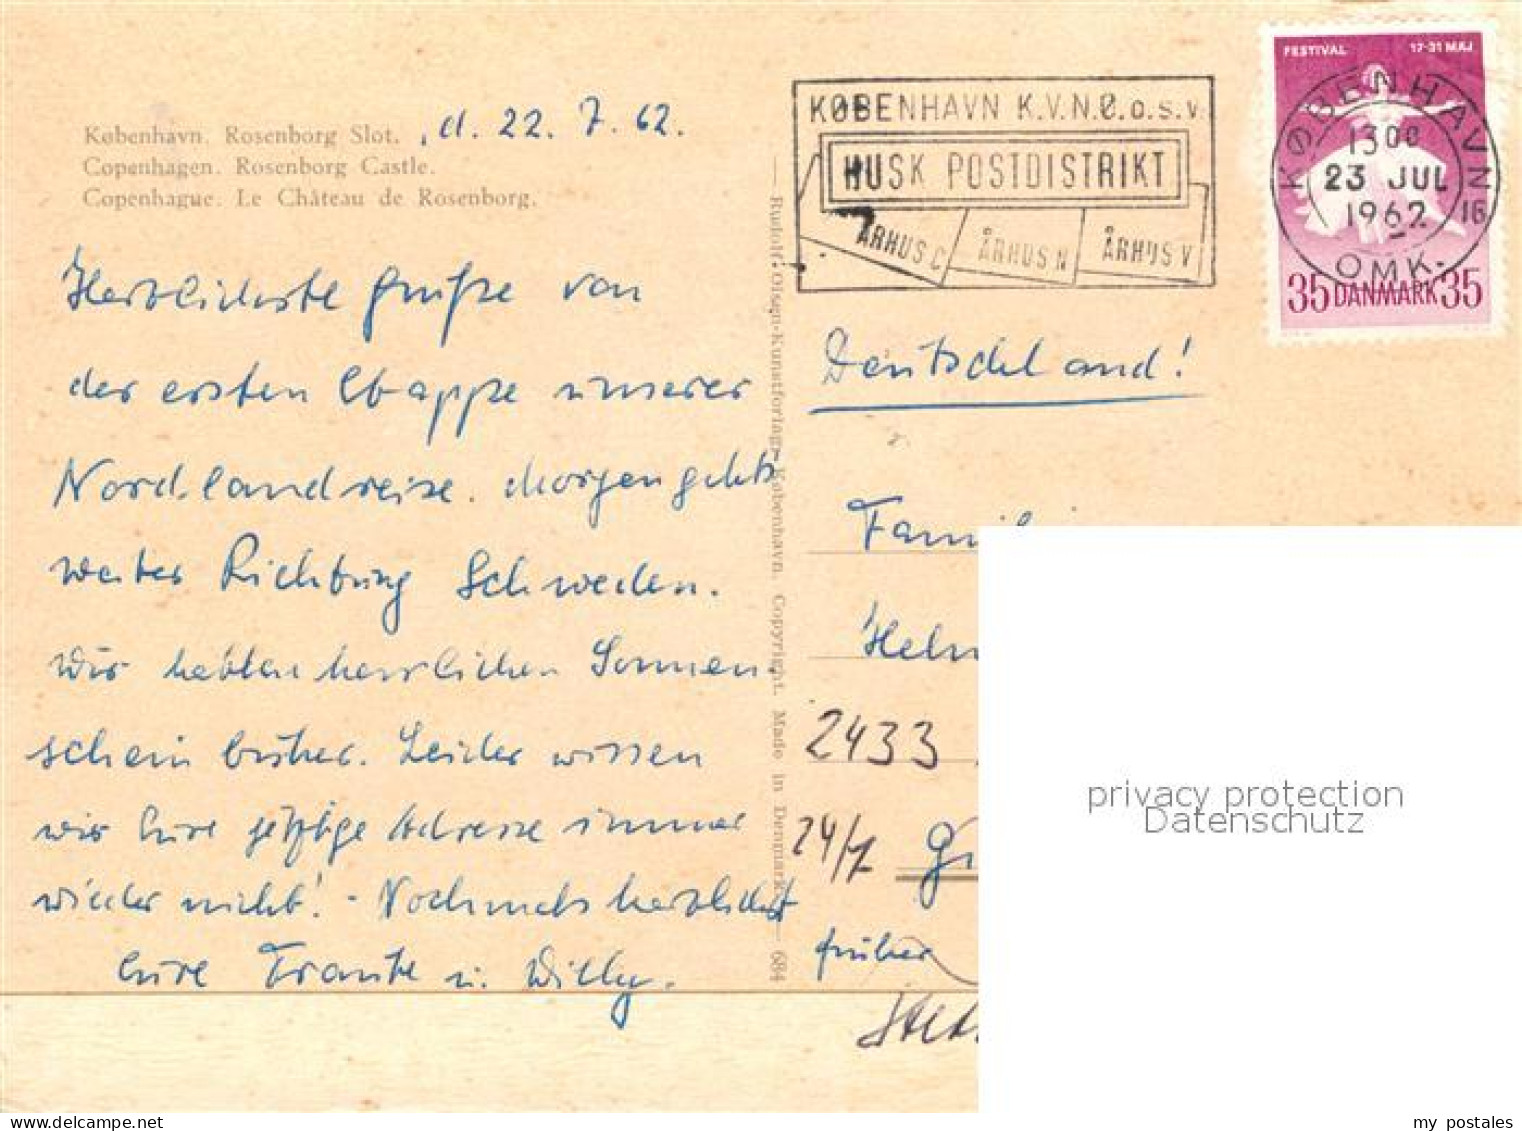 København. Rosenborg Slot.
Copenhagen. Rosenborg Castle.
Copenhague. Le Château de Rosenborg.
d. 22. 7. 62.
Herzlichste Grüße von
der ersten Etappe unserer
Nordlandreise. Morgen gehts
weiter Richtung Schweden.
Wir hatten herrlichen Sonnen-
schein bisher. Leider wissen
wir Eure jetzige Adresse immer
wieder nicht! - Nochmals herzlichst
Eure Traute u. Willy.
— Rudolf Olsen-Kunstforlag-København. Copyright. Made in Denmark. — 684
KØBENHAVN K.V.N.Ø.o.s.v.
HUSK POSTDISTRIKT
ÅRHUS C ÅRHUS N ÅRHUS V
FESTIVAL 17-31 MAJ
KØBENHAVN 16
13 00
23 JUL
1962
OMK.
35 DANMARK 35
Deutschland!
Famil
Helm
2433
24/7
früher
privacy protection
Datenschutz
my postales